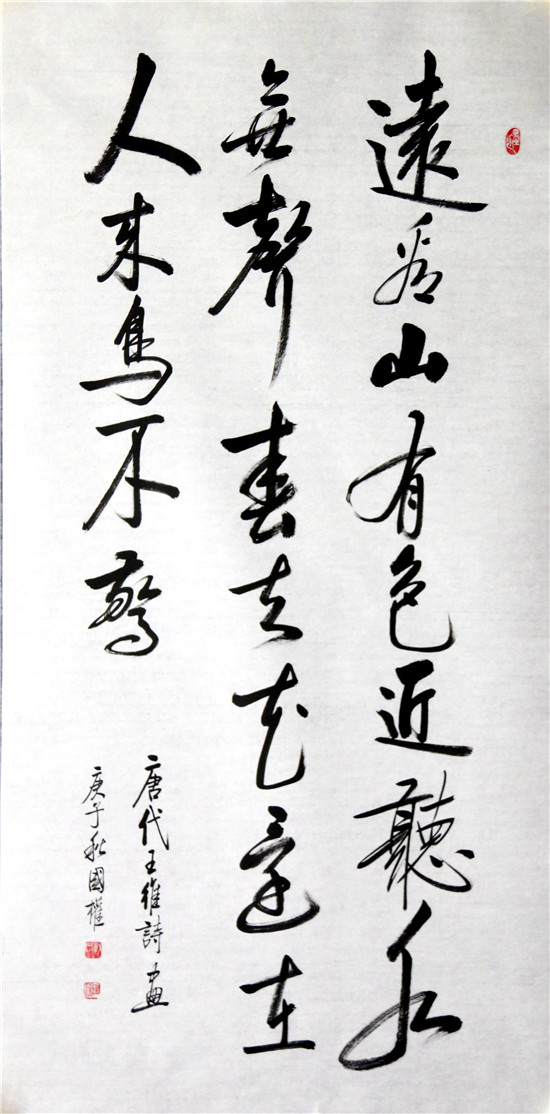 遠看山有色近聽水
無聲春去花還在
人來鳥不驚
唐代王維詩畫
庚子秋國權